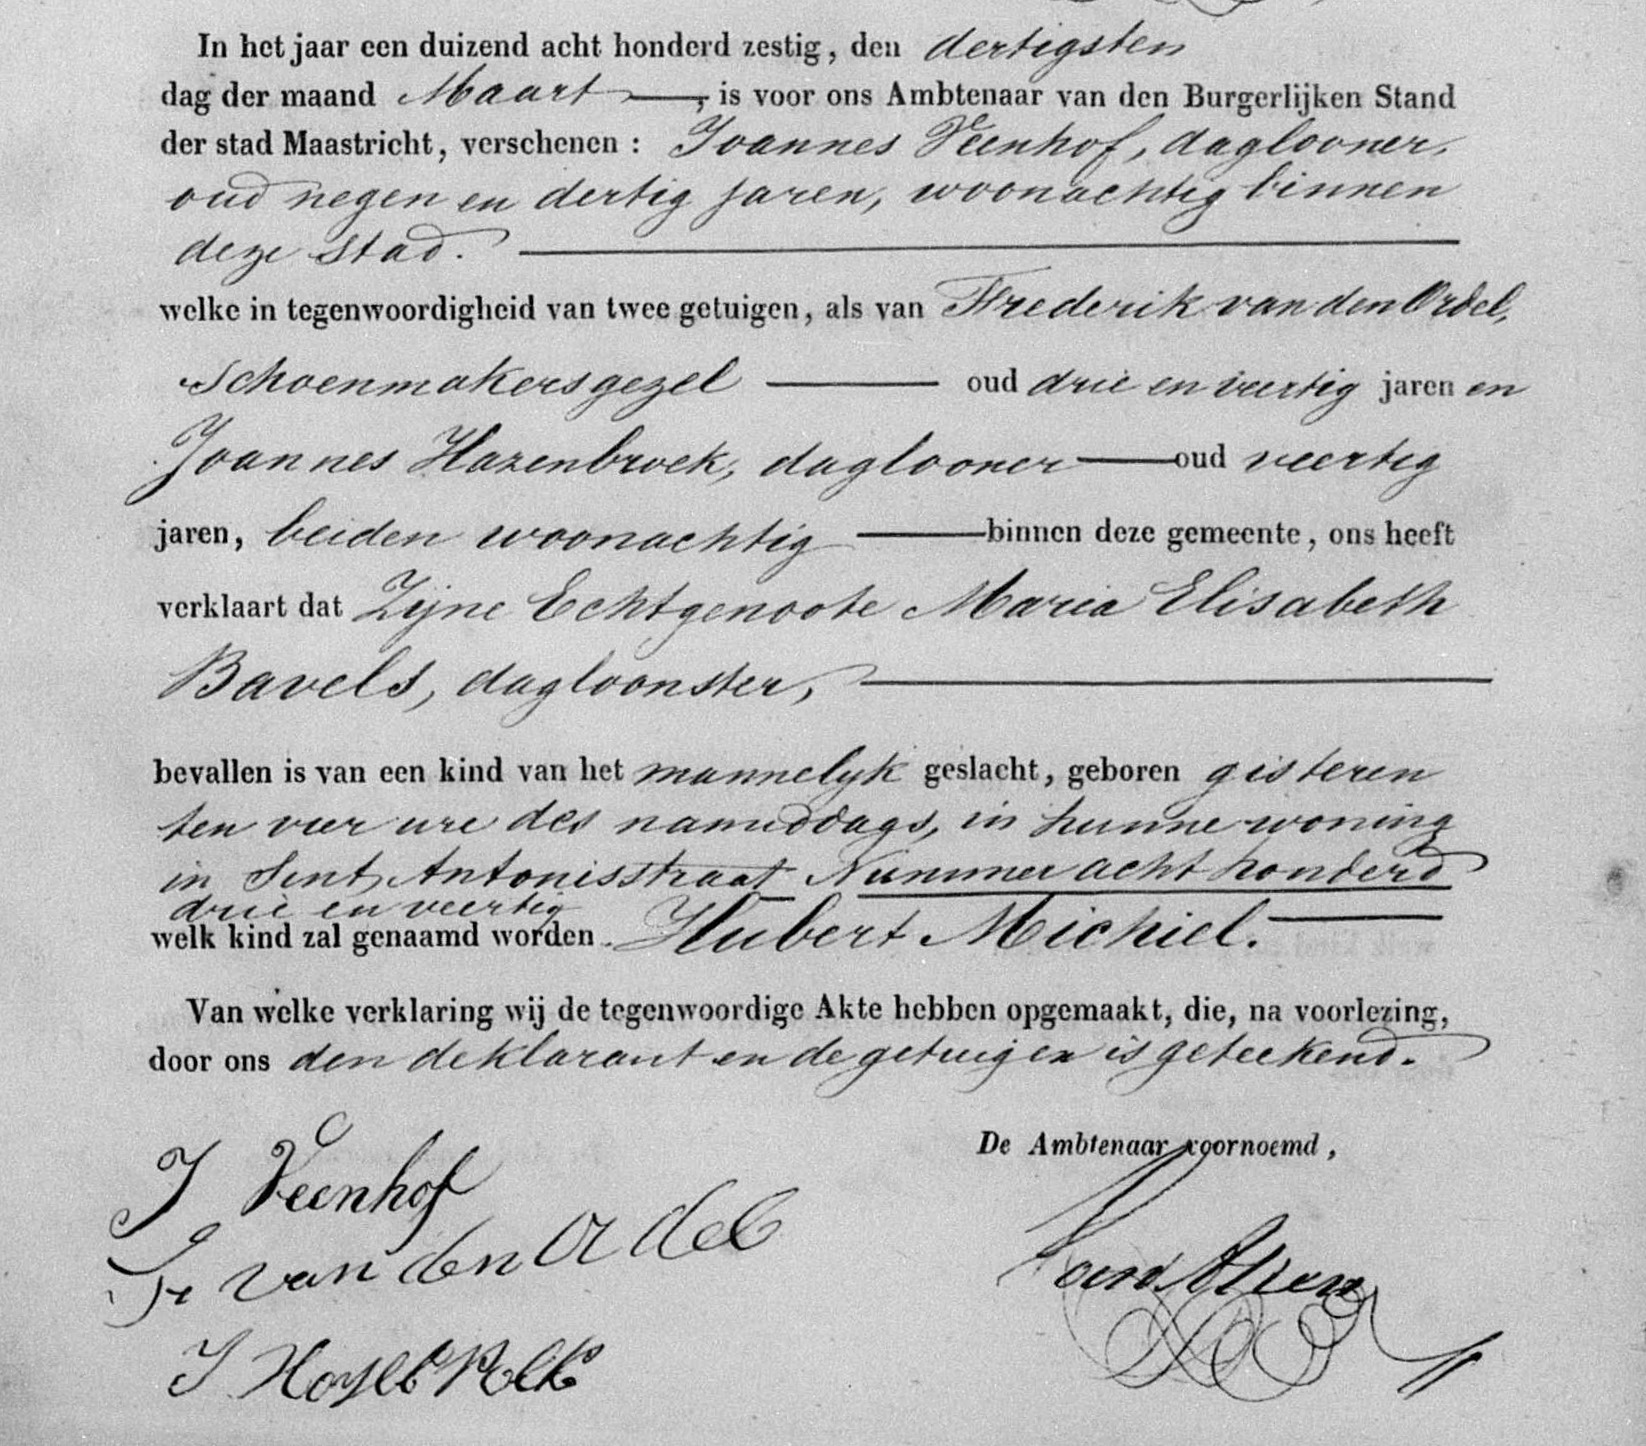 In het jaar een duizend acht honderd zestig, den dertigsten
dag der maand Maart, is voor ons Ambtenaar van den Burgerlijken Stand
der stad Maastricht, verschenen : Joannes Veenhof, daglooner,
oud negen en dertig jaren, woonachtig binnen
deze stad.
welke in tegenwoordigheid van twee getuigen, als van Frederik van den Ordel,
Schoenmakersgezel oud drie en veertig jaren en
Joannes Hazenbroek, daglooner oud veertig
jaren, beiden woonachtig binnen deze gemeente, ons heeft
verklaart dat Zijne Echtgenoote Maria Elisabeth
Bavels, dagloonster,
bevallen is van een kind van het mannelyk geslacht, geboren gisteren
ten vier ure des namiddags, in hunne woning
in Sint Antonisstraat Nummer acht honderd
drie en veertig
welk kind zal genaamd worden Hubert Michiel.
Van welke verklaring wij de tegenwoordige Akte hebben opgemaakt, die, na voorlezing,
door ons den deklarant en de getuigen is geteekend.
De Ambtenaar voornoemd,
J Veenhof
Fr van den Ordel
J